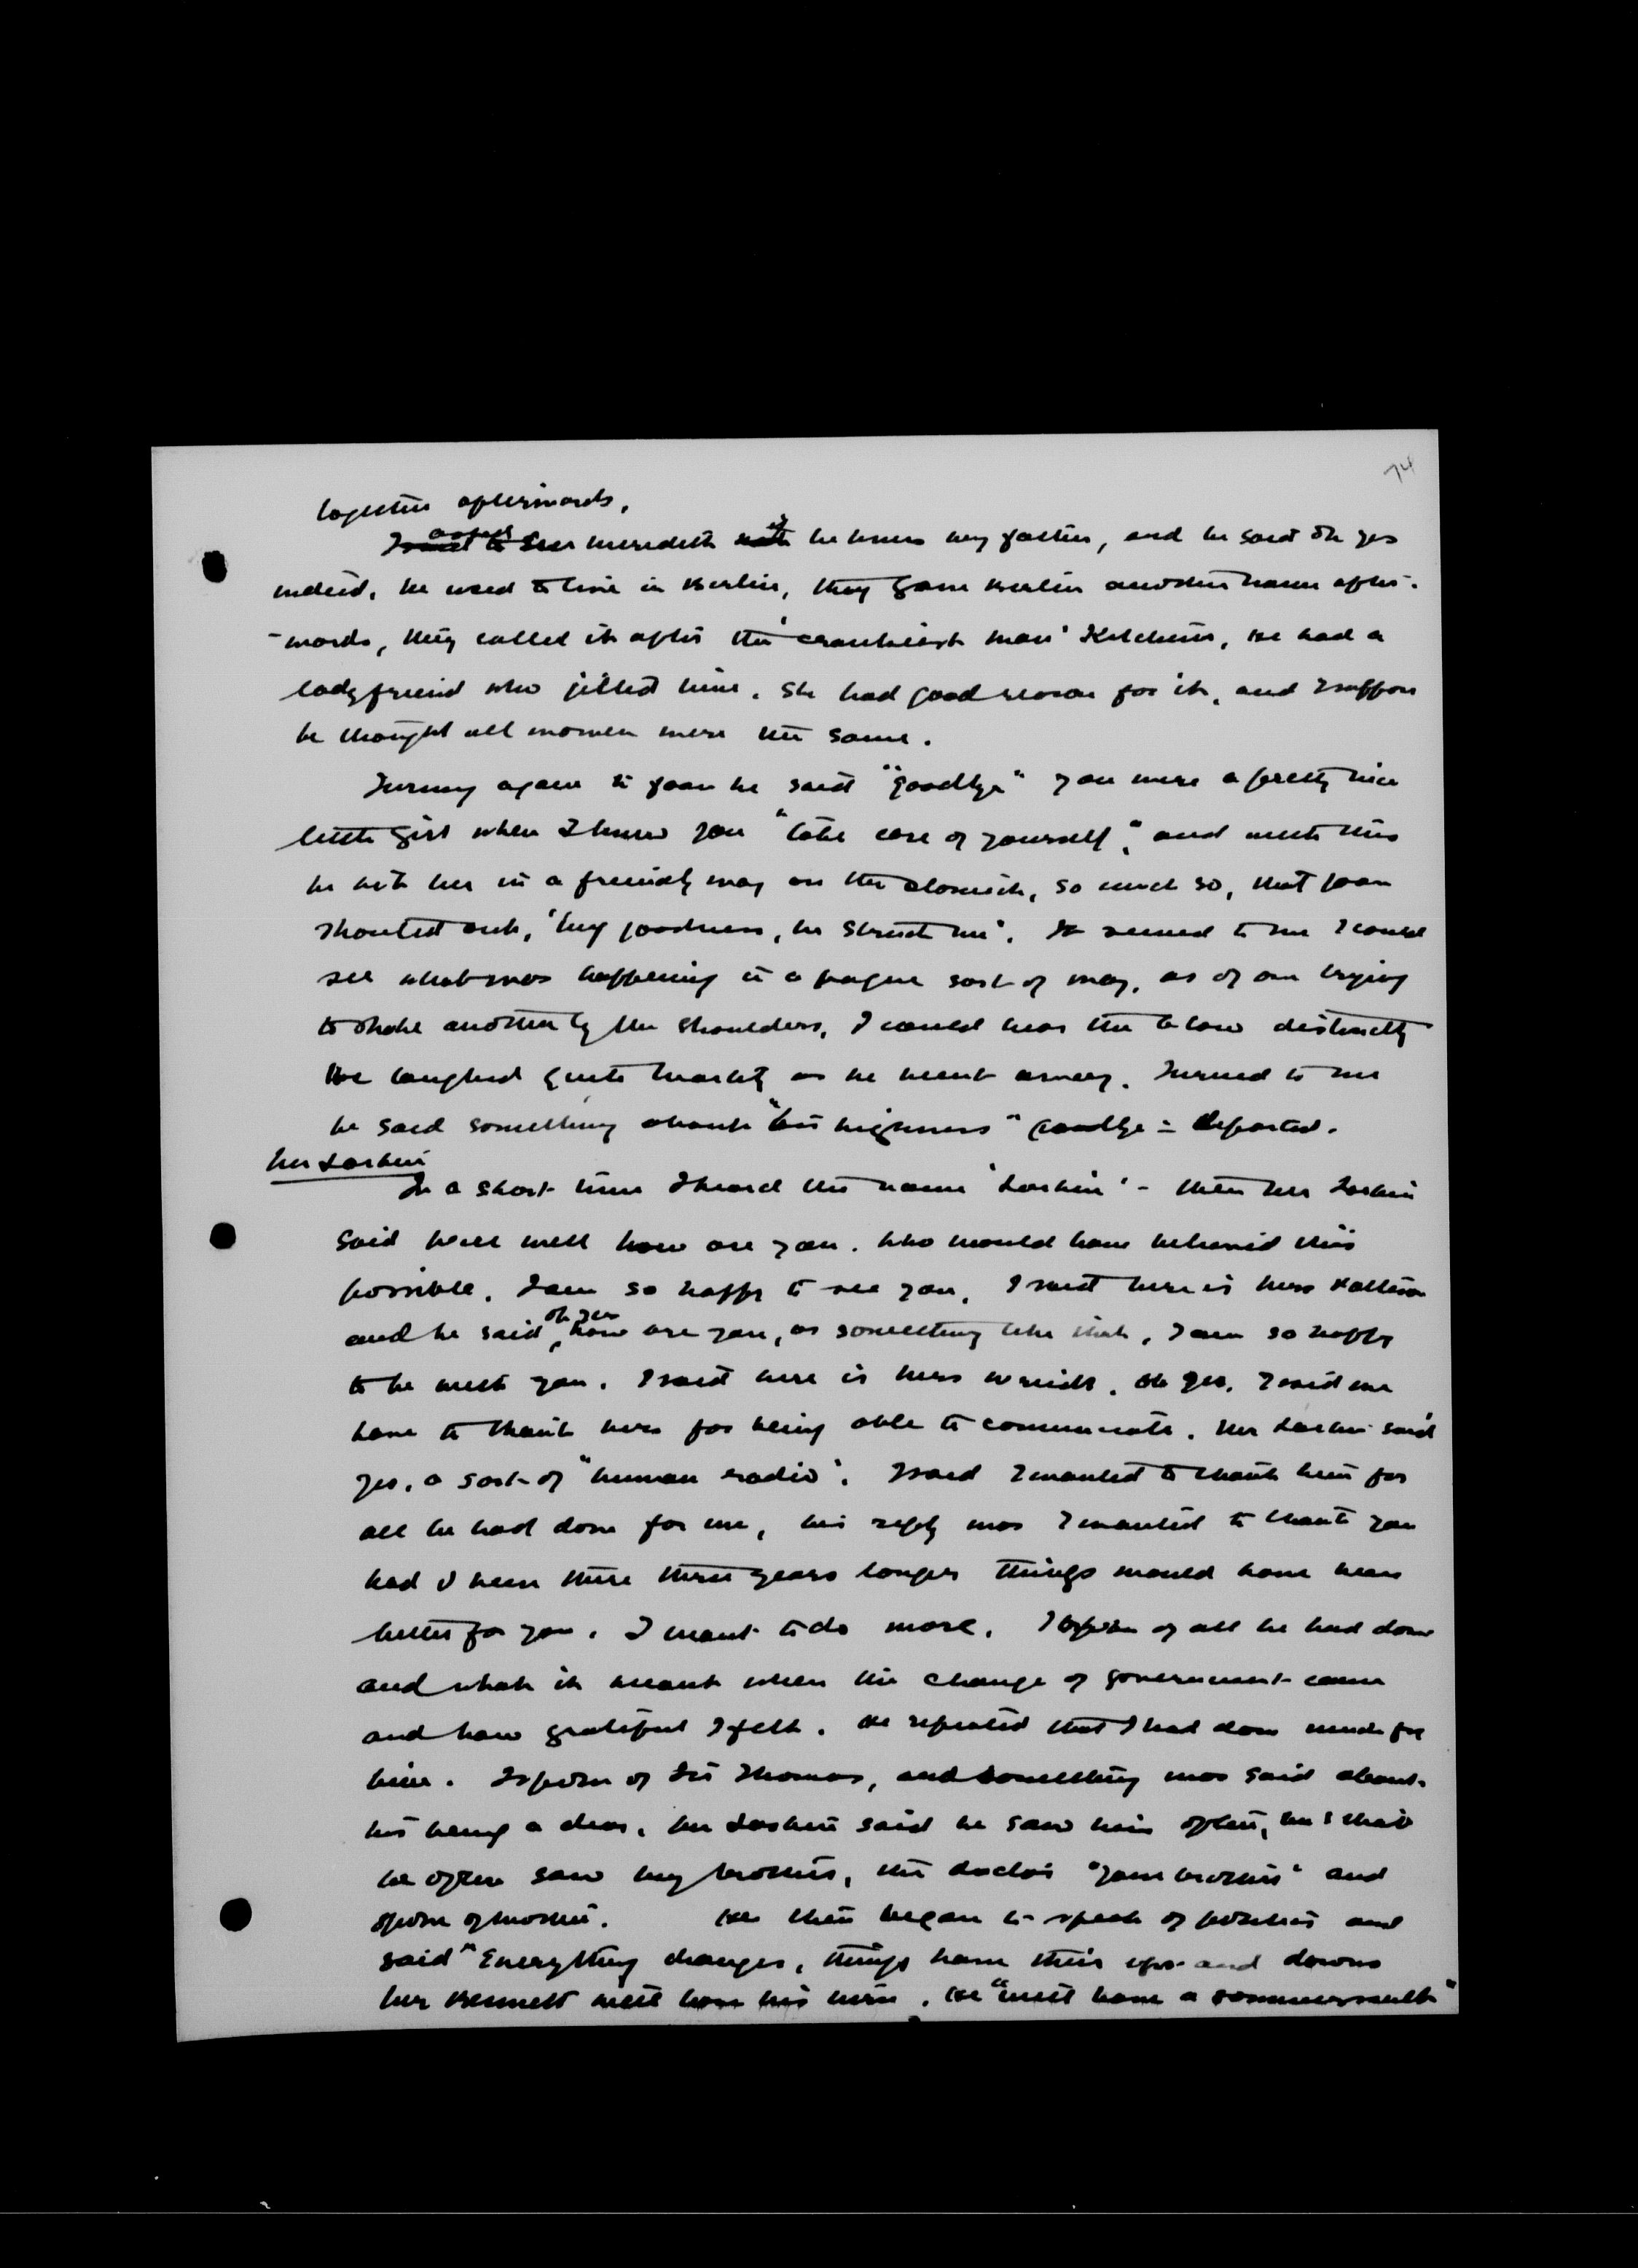 74
together afterwards.
I asked Mr Meredith if he knew my father, and he said Oh yes
indeed. he used to live in Berlin, they gave Berlin another name after-
-wards, they called it after the 'crankiest man' Kitchener, He had a
lady friend who jilted him. She had good reason for it, and I suppose
he thought all women were the same.
Turning again to Joan he said "goodbye" you were a pretty nice
little girl when I knew you "take care of yourself", and with this
he hit her in a friendly way on the stomach, so much so, that Joan
shouted out, 'My goodness, he struck me'. It seemed to me I could
see what was happening in a vague sort of way, as of one trying
to shake another by the shoulders, I could hear the blow distinctly
He laughed quite heartily as he went away. Turned to me
he said something about "his highness" goodbye = departed.
Mr Larkin
In a short time I heard the name 'Larkin' - then Mr Larkin
said well well how are you. Who would have believed this
possible. I am so happy to see you. I said here is Miss Patteson
and he said oh yes, how are you, or something like that, I am so happy
to be with you. I said here is Mrs Wriedt. Oh yes. I said we
have to thank her for being able to communicate. Mr Larkin said
yes, a sort of "human radio". I said I wanted to thank him for
all he had done for me, his reply was I wanted to thank you
had I been there three years longer things would have been
better for you. I want to do more. I spoke of all he had done
and what it meant when the change of government came
and how grateful I felt. He repeated that I had done much for
him. I spoke of Sir Thomas, and something was said about
his being a dear. Mr Larkin said he saw him often, and that
he often saw my brother, the doctor "your brother" and
spoke of mother. He then began to speak of politics and
said "Everything changes, things have their ups and downs
Mr Bennett will have his turn. He "will have a sommersault"